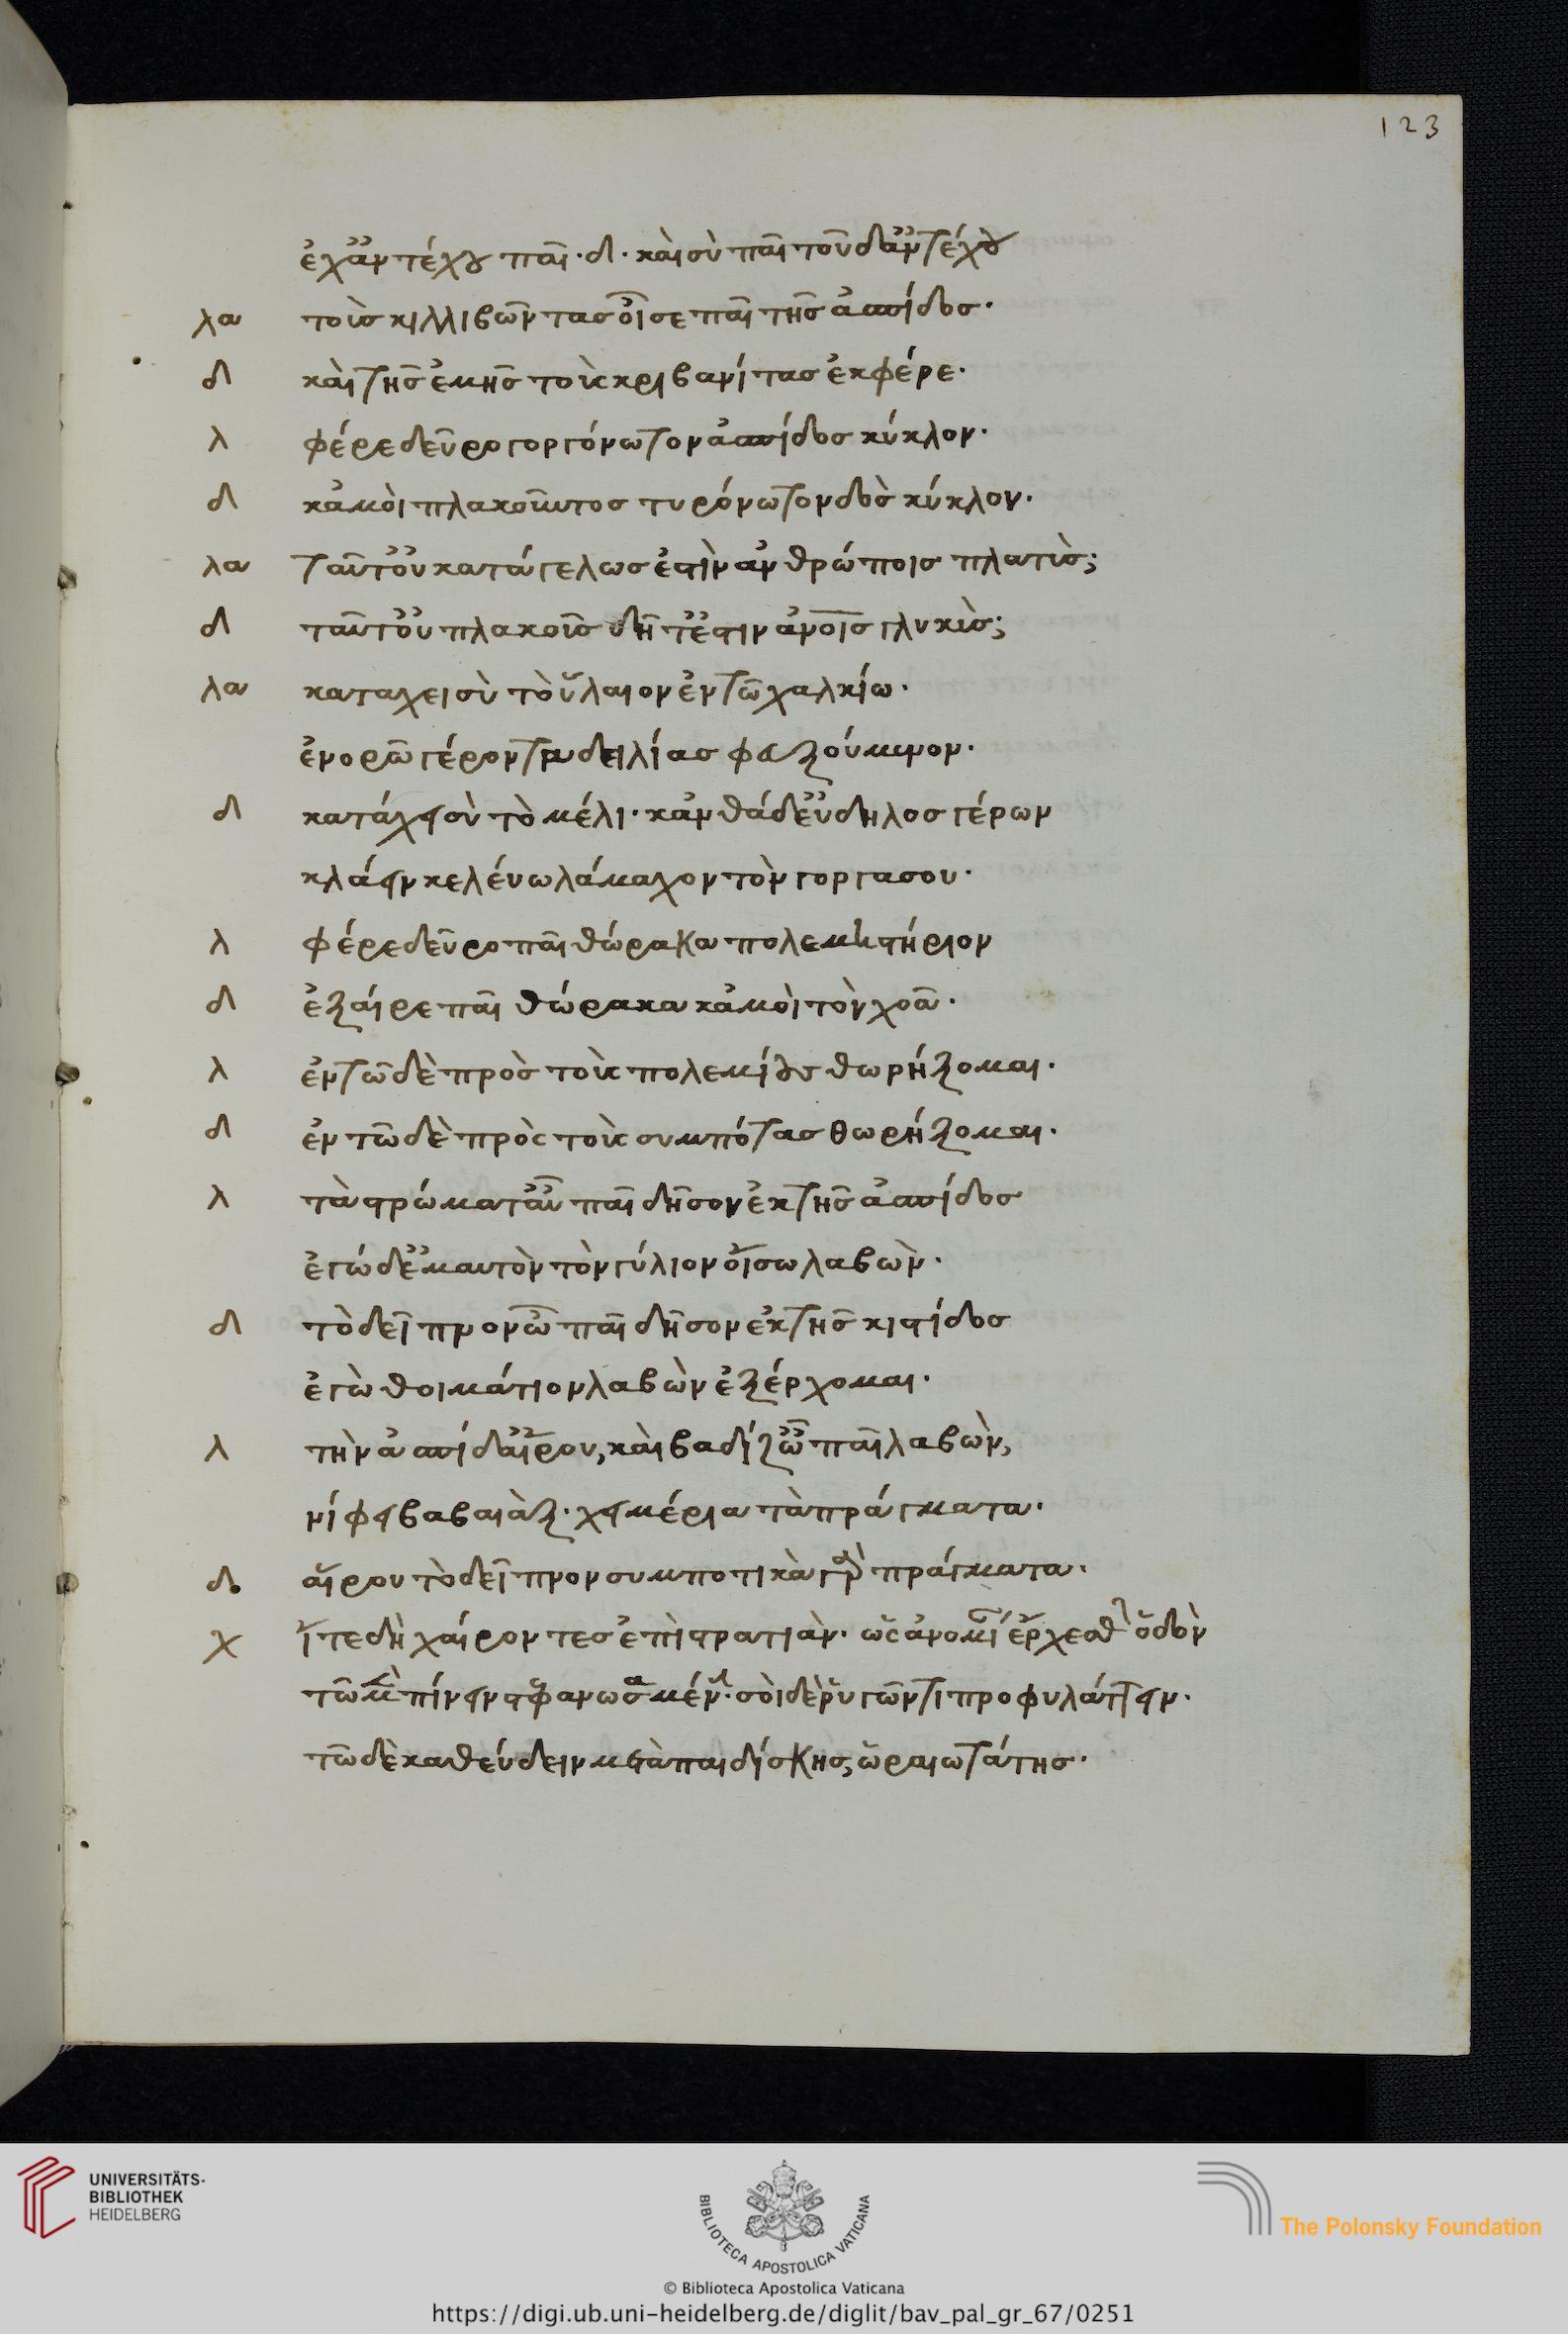 123
ἔχ' ἀντέχου παῖ. δ. καὶ σὺ παῖ τοῦδ' ἀντέχου
λα τοὺς κιλλίβωντας οἶσε παῖ τῆς ἀσπίδος.
δ καὶ τῆς ἐμῆς τοὺς κριβανίτας ἔκφέρε.
λ φέρε δεῦρο γοργόνωτον ἀσπίδος κύκλον.
δ κἀμοὶ πλακοῦντος τυρόνωτον δὸς κύκλον.
λα ταῦτ' οὐ κατάγελως ἐστὶν ἀνθρώποις πλατὺς;
δ ταῦτ' οὐ πλακοῦς δῆτ' ἐστὶν ἀνοις γλυκὺς;
λα κατάχει σὺ τοὔλαιον ἐν τῶ χαλκίω.
ἐνορῶ γέροντα δειλίας φευξούμενον.
δ κατάχει σὺ τὸ μέλι. κἀνθάδ' εὔδηλος γέρων
κλάειν κελεύω λάμαχον τὸν γοργασου.
λ φέρε δεῦρο παῖ θώρακα πολεμιστήριον
δ ἔξαιρε παῖ θώρακα κἀμοὶ τὸν χοᾶ.
λ ἐν τῶδε πρὸς τοὺς πολεμίους θωρήξομαι.
δ ἐν τῶδε πρὸς τοὺς συμπότας θωρήξομαι.
λ τὰ στρώματ' ὦ παῖ δῆσον ἐκ τῆς ἀσπίδος
ἐγώ δ' ἐμαυτὸν τὸν γύλιον οἴσω λαβὼν.
δ τὸ δεῖπνον ὦ παῖ δῆσον ἐκ τῆς κιστίδος
ἐγὼ θοιμάτιον λαβὼν ἐξέρχομαι.
λ τὴν ἀσπίδ' αἴρου, καὶ βάδιζ' ὦ παῖ λαβὼν,
νίφει βαβαιὰξ. χειμέρια τὰ πράγματα.
δ. αἴρου τὸ δεῖπνον συμποτικὰ γὰρ πράγματα.
χ ἴτε δὴ χαίροντες ἐπὶ στρατιὰν. ὡς ἀνομοίαν ἔρχεσθον ὁδὸν
τῶ μὲν πίνειν στεφανωσαμένω. σοὶ δὲ ῥιγῶντι προφυλάττειν.
τῶ δὲ καθεύδειν μετὰ παιδίσκης, ὡραιωτάτης.
UNIVERSITÄTS-
BIBLIOTHEK
HEIDELBERG
BIBLIOTECA APOSTOLICA VATICANA
The Polonsky Foundation
© Biblioteca Apostolica Vaticana
https://digi.ub.uni-heidelberg.de/diglit/bav_pal_gr_67/0251